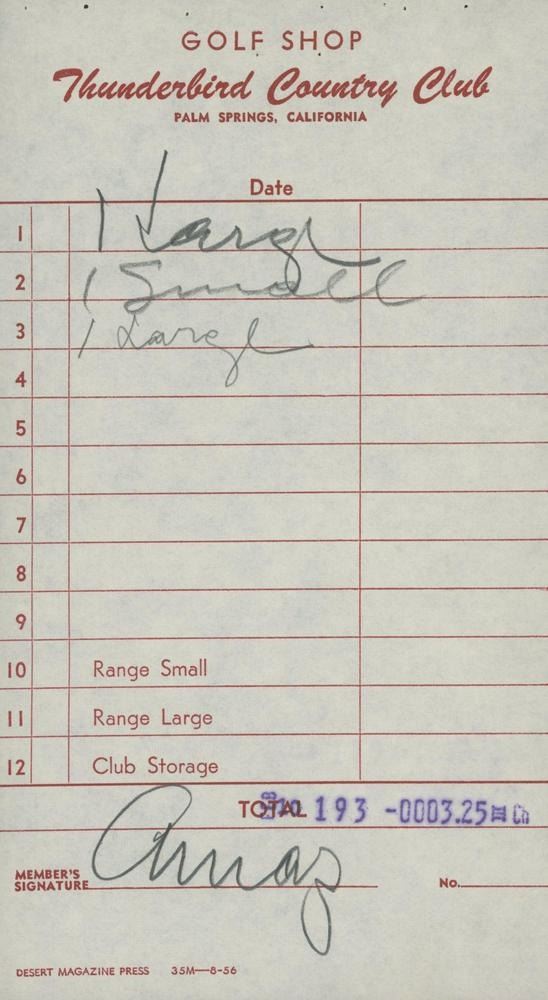 GOLF SHOP
Thunderbird Country Club
PALM SPRINGS, CALIFORNIA
Date
1 1 Large
2 1 Small
3 1 Large
4
5
6
7
8
9
10 Range Small
11 Range Large
12 Club Storage
TOTAL 193 -0003.25 Ch
MEMBER'S
SIGNATURE No.
DESERT MAGAZINE PRESS 35M—8-56